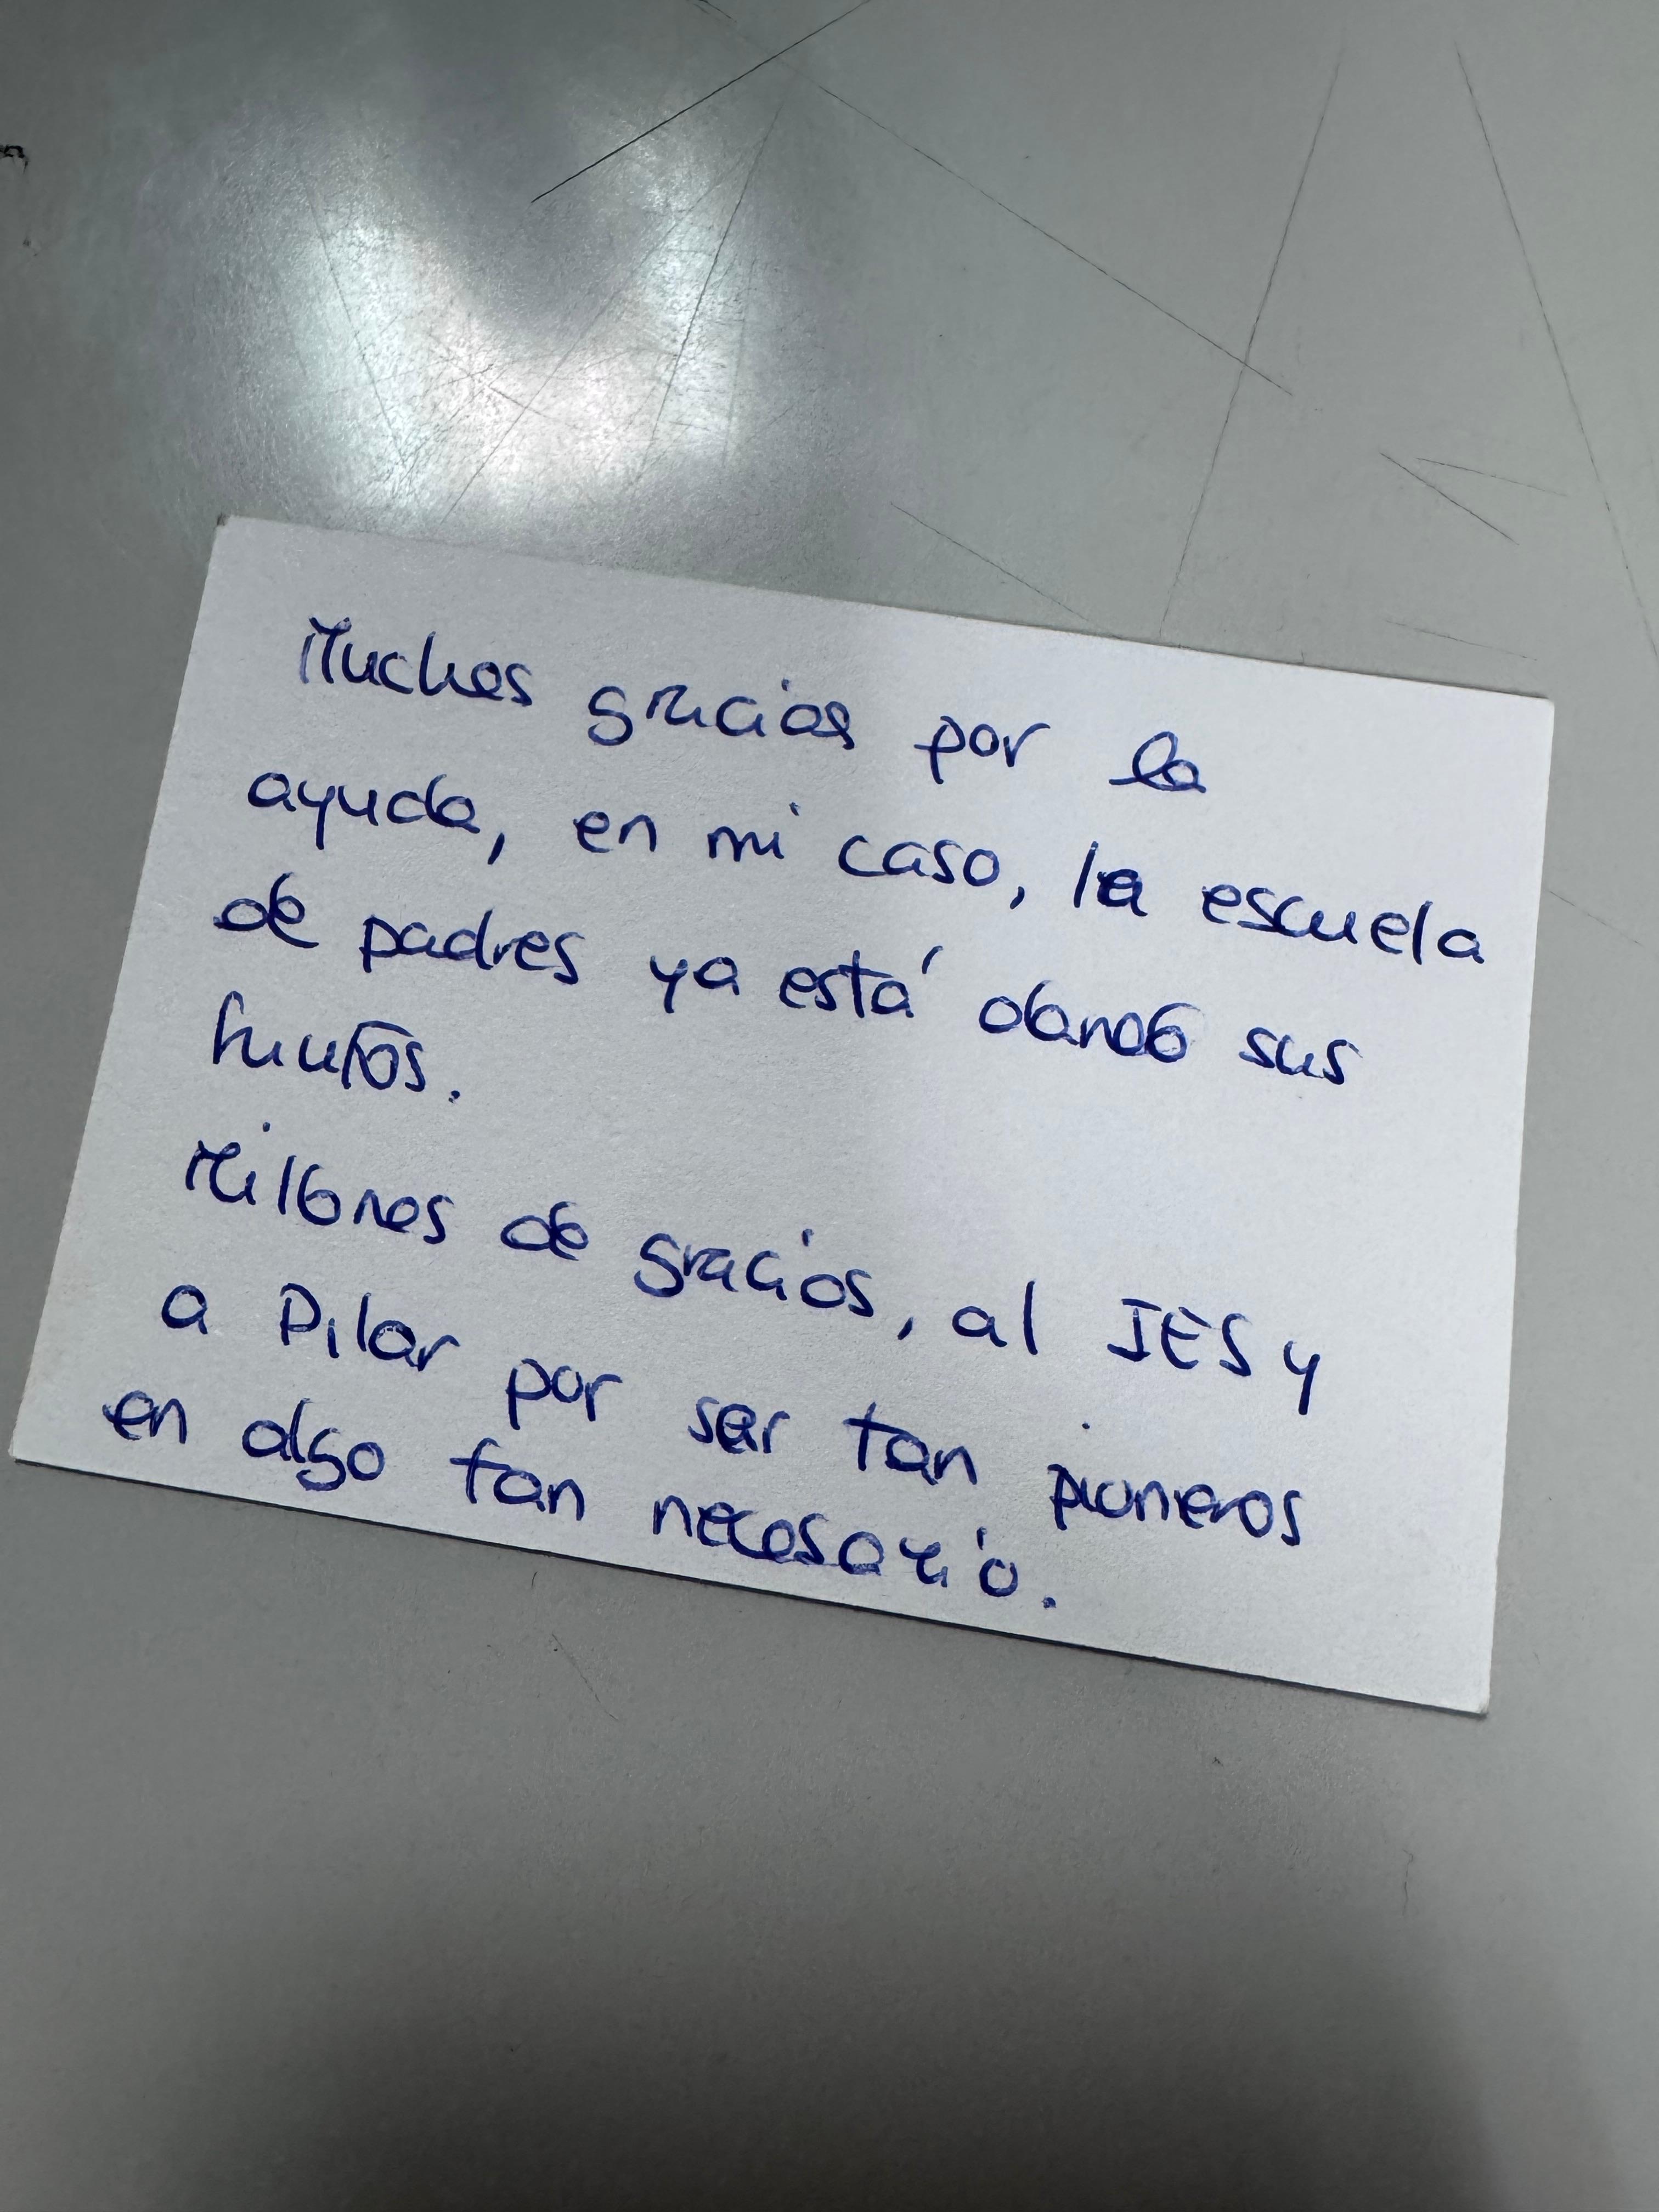 Muchas gracias por la
ayuda, en mi caso, la escuela
de padres ya está dando sus
frutos.
Millones de gracias, al IES y
a Pilar por ser tan pioneros
en algo tan necesario.